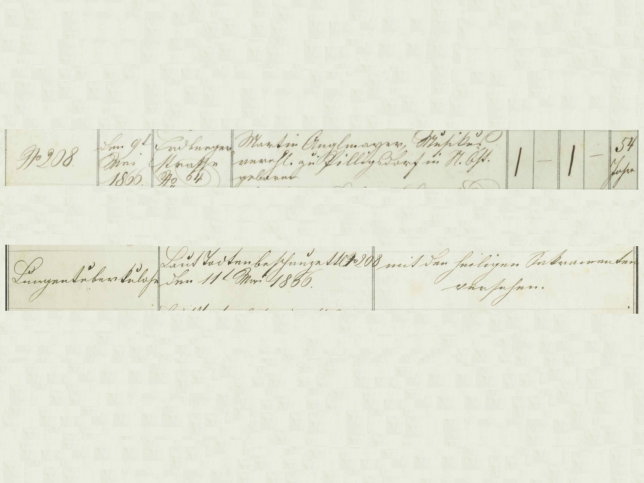 No 208
den 9t
Mai
1866.
Erdberger
Strasse
No 64
Martin Anglmayer, Musikus
verehl. zu Pilligsdorf in N. Öst.
geboren
1 — 1 —
54
Jahr
Lungentuberkulose
Laut Todtenbeschauzettl No 208
den 11t Mai 1866.
mit den heiligen Sakramenten
versehen.